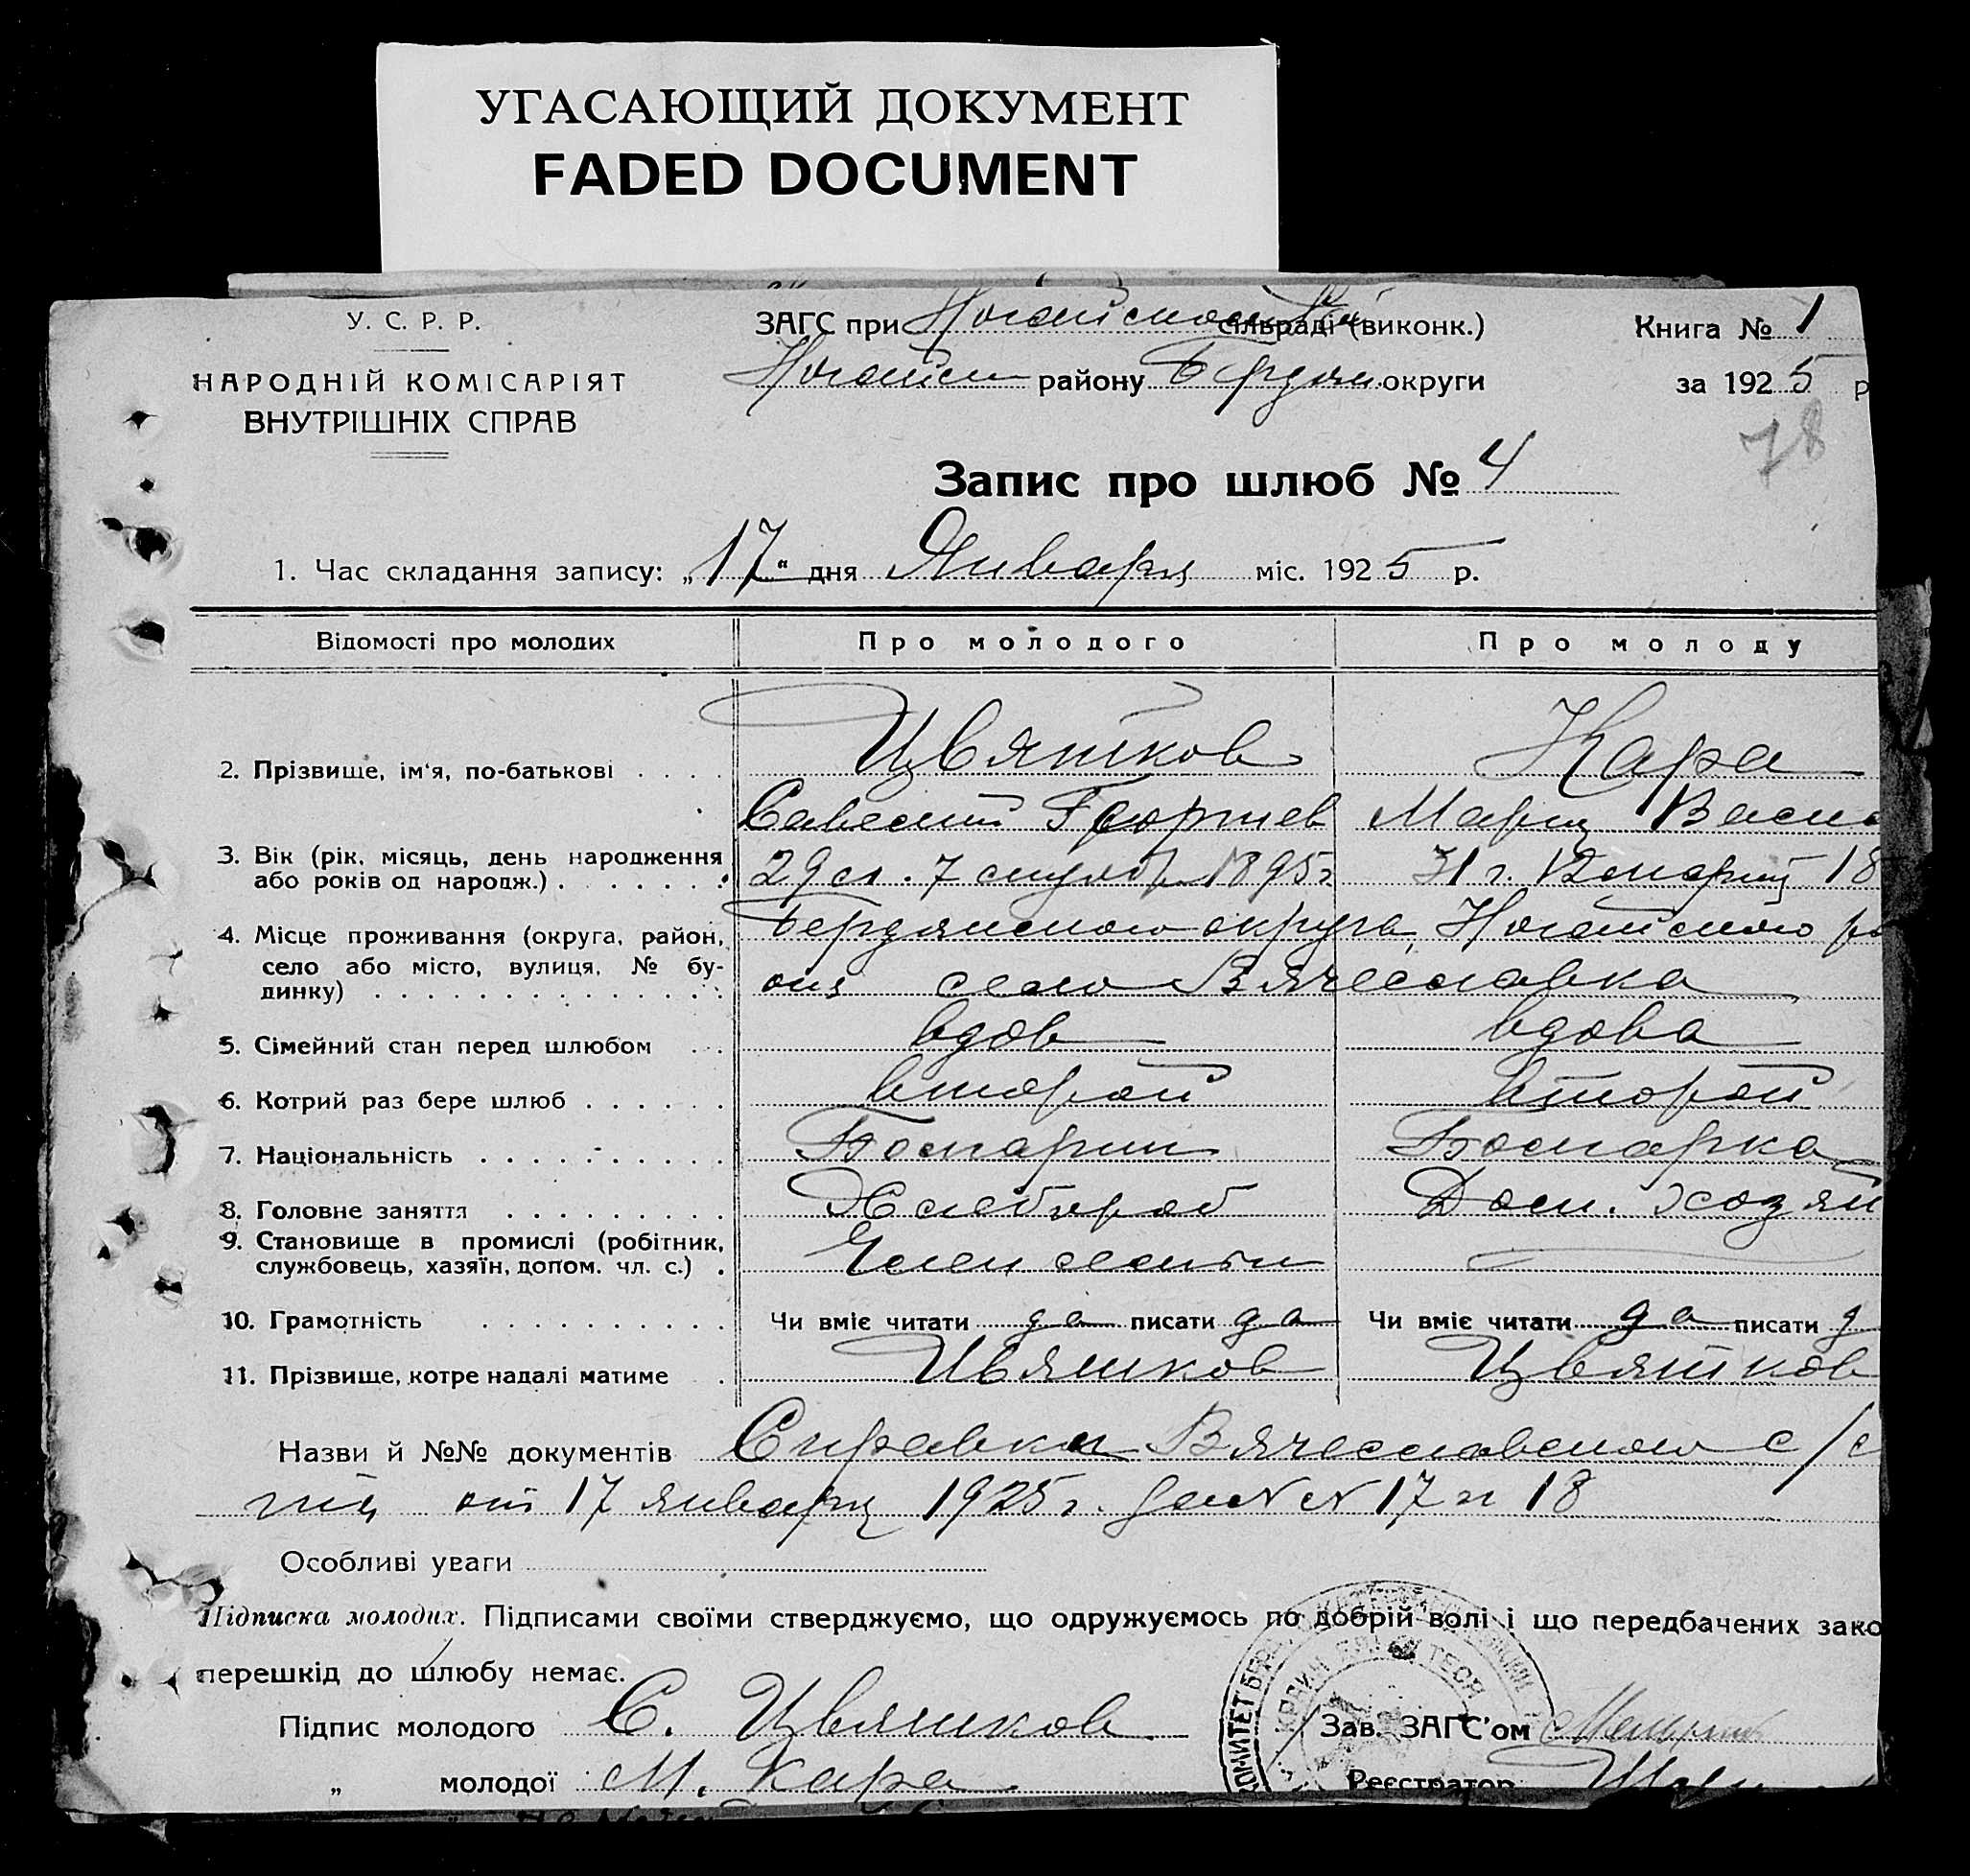 УГАСАЮЩИЙ ДОКУМЕНТ
FADED DOCUMENT
У. С. Р. Р.
НАРОДНІЙ КОМІСАРІЯТ
ВНУТРІШНІХ СПРАВ
ЗАГС при сільраді (виконк.)
району Бердян. округи
Книга № 1
за 1925 р
78
Запис про шлюб № 4
1. Час складання запису: „17“ дня Января міс. 1925 р.
Відомості про молодих Про молодого Про молоду
2. Прізвище, ім'я, по-батькові . . . . Цвятков Кара
Савелий Георгиев Мария Васи
3. Вік (рік, місяць, день народження
або років од народж.) . . . . . . . 29 л. 7 1895г 31 г. 18
4. Місце проживання (округа, район, Бердянского округа, Ногайского ра
село або місто, вулиця, № бу-
динку) . . . . . . . . . . . . . . она село Вячеславка
5. Сімейний стан перед шлюбом . . . вдов вдова
6. Котрий раз бере шлюб . . . . . . второй второй
7. Національність . . . . . . . . . Болгарин Болгарка
8. Головне заняття . . . . . . . . . Хлебороб Дом. хозяй
9. Становище в промислі (робітник,
службовець, хазяїн, допом. чл. с.) . Член семьи
10. Грамотність . . . . . . . . . . Чи вміє читати да писати да Чи вміє читати да писати д
11. Прізвище, котре надалі матиме . Цвятков Цвятков
Назви й №№ документів Справки Вячеславского с/с
от 17 января 1925 г. за N N 17 и 18
Особливі уваги
Підписка молодих. Підписами своїми стверджуємо, що одружуємось по добрій волі і що передбачених зако
перешкід до шлюбу немає.
Підпис молодого С. Цвятков Зав. ЗАГС'ом
„ молодої М. Кара Реєстратор